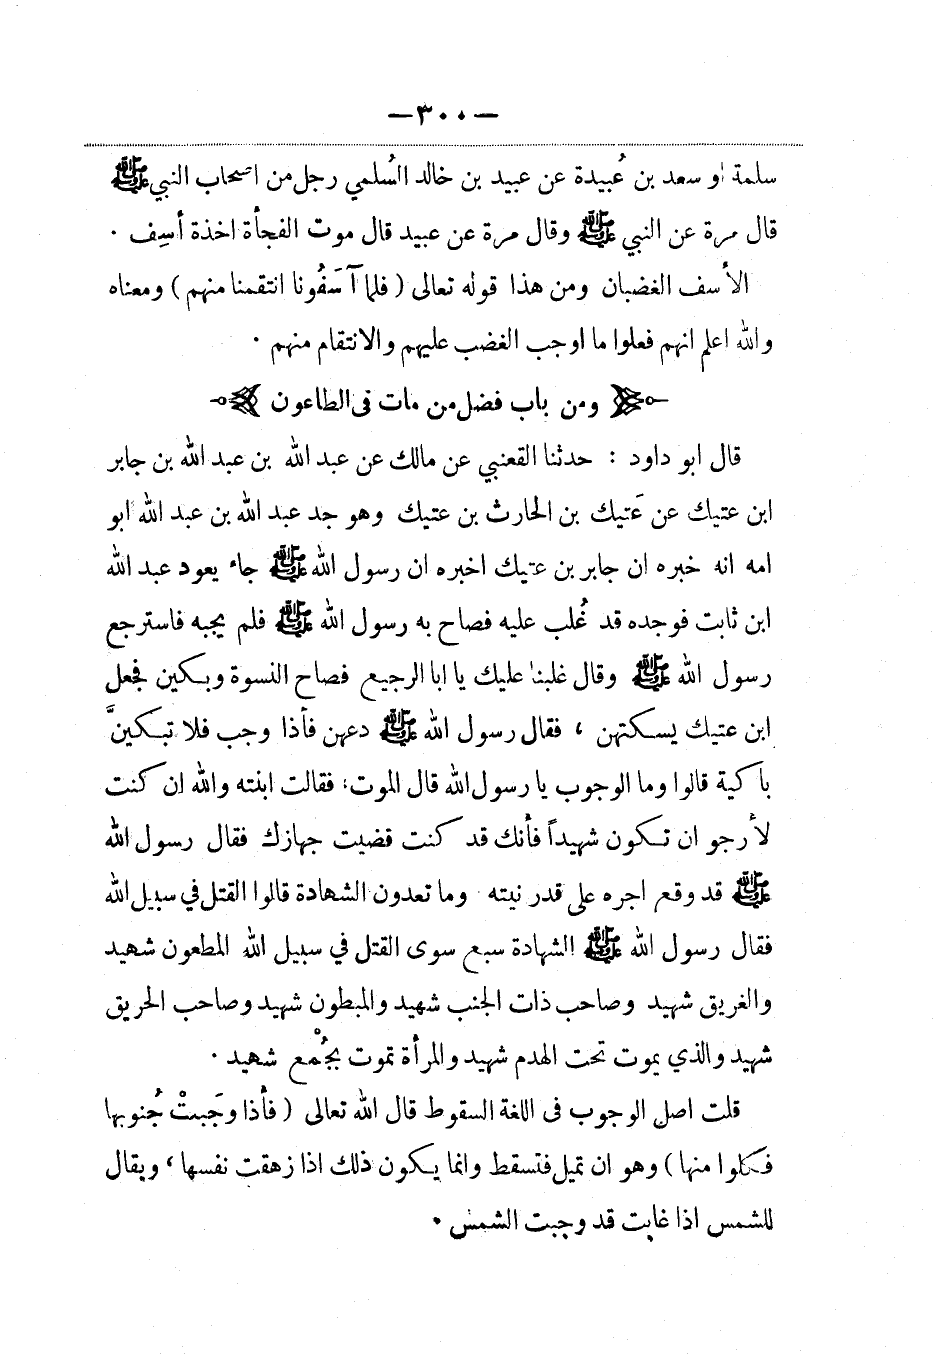 — ٣٠٠ —
سلمة او سعد بن عُبيدة عن عبيد بن خالد السُلمي رجل من اصحاب النبي ﷺ
قال مرة عن النبي ﷺ وقال مرة عن عبيد قال موت الفجأة اخذة أسِف .
الأسف الغضبان ومن هذا قوله تعالى ( فلما آسَفُونا انتقمنا منهم ) ومعناه
والله اعلم انهم فعلوا ما اوجب الغضب عليهم والانتقام منهم .
ومن باب فضل من مات فى الطاعون
قال ابو داود : حدثنا القعنبي عن مالك عن عبد الله بن عبد الله بن جابر
ابن عتيك عن عَتيك بن الحارث بن عتيك وهو جد عبد الله بن عبد الله ابو
امه انه خبره ان جابر بن عتيك اخبره ان رسول الله ﷺ جاء يعود عبد الله
ابن ثابت فوجده قد غُلب عليه فصاح به رسول الله ﷺ فلم يجبه فاسترجع
رسول الله ﷺ وقال غلبنا عليك يا ابا الرجيع فصاح النسوة وبكين فجعل
ابن عتيك يسكتهن ، فقال رسول الله ﷺ دعهن فأذا وجب فلا تبكينَّ
باكية قالوا وما الوجوب يا رسول الله قال الموت : فقالت ابنته والله ان كنت
لأرجو ان تكون شهيداً فأنك قد كنت قضيت جهازك فقال رسول الله
ﷺ قد وقع اجره على قدر نيته وما تعدون الشهادة قالوا القتل في سبيل الله
فقال رسول الله ﷺ الشهادة سبع سوى القتل في سبيل الله المطعون شهيد
والغريق شهيد وصاحب ذات الجنب شهيد والمبطون شهيد وصاحب الحريق
شهيد والذي يموت تحت الهدم شهيد والمرأة تموت بجُمْع شهيد .
قلت اصل الوجوب فى اللغة السقوط قال الله تعالى ( فأذا وجَبتْ جُنوبها
فكلوا منها ) وهو ان تميل فتسقط وانما يكون ذلك اذا زهقت نفسها ، ويقال
للشمس اذا غابت قد وجبت الشمس .